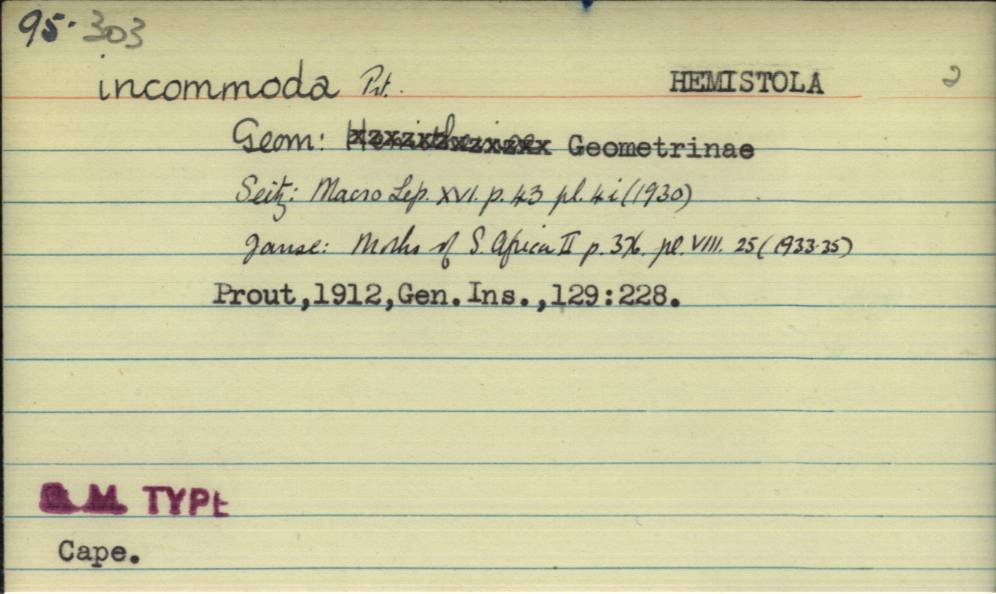 95·303
incommoda Prt. HEMISTOLA 2
Geom: Geometrinae
Seitz: Macro Lep. XVI. p. 43 pl. 4i (1930)
Janse: Moths of S. Africa II p. 376. pl. VIII. 25 (1933-35)
Prout,1912,Gen.Ins.,129:228.
B.M. TYPE
Cape.